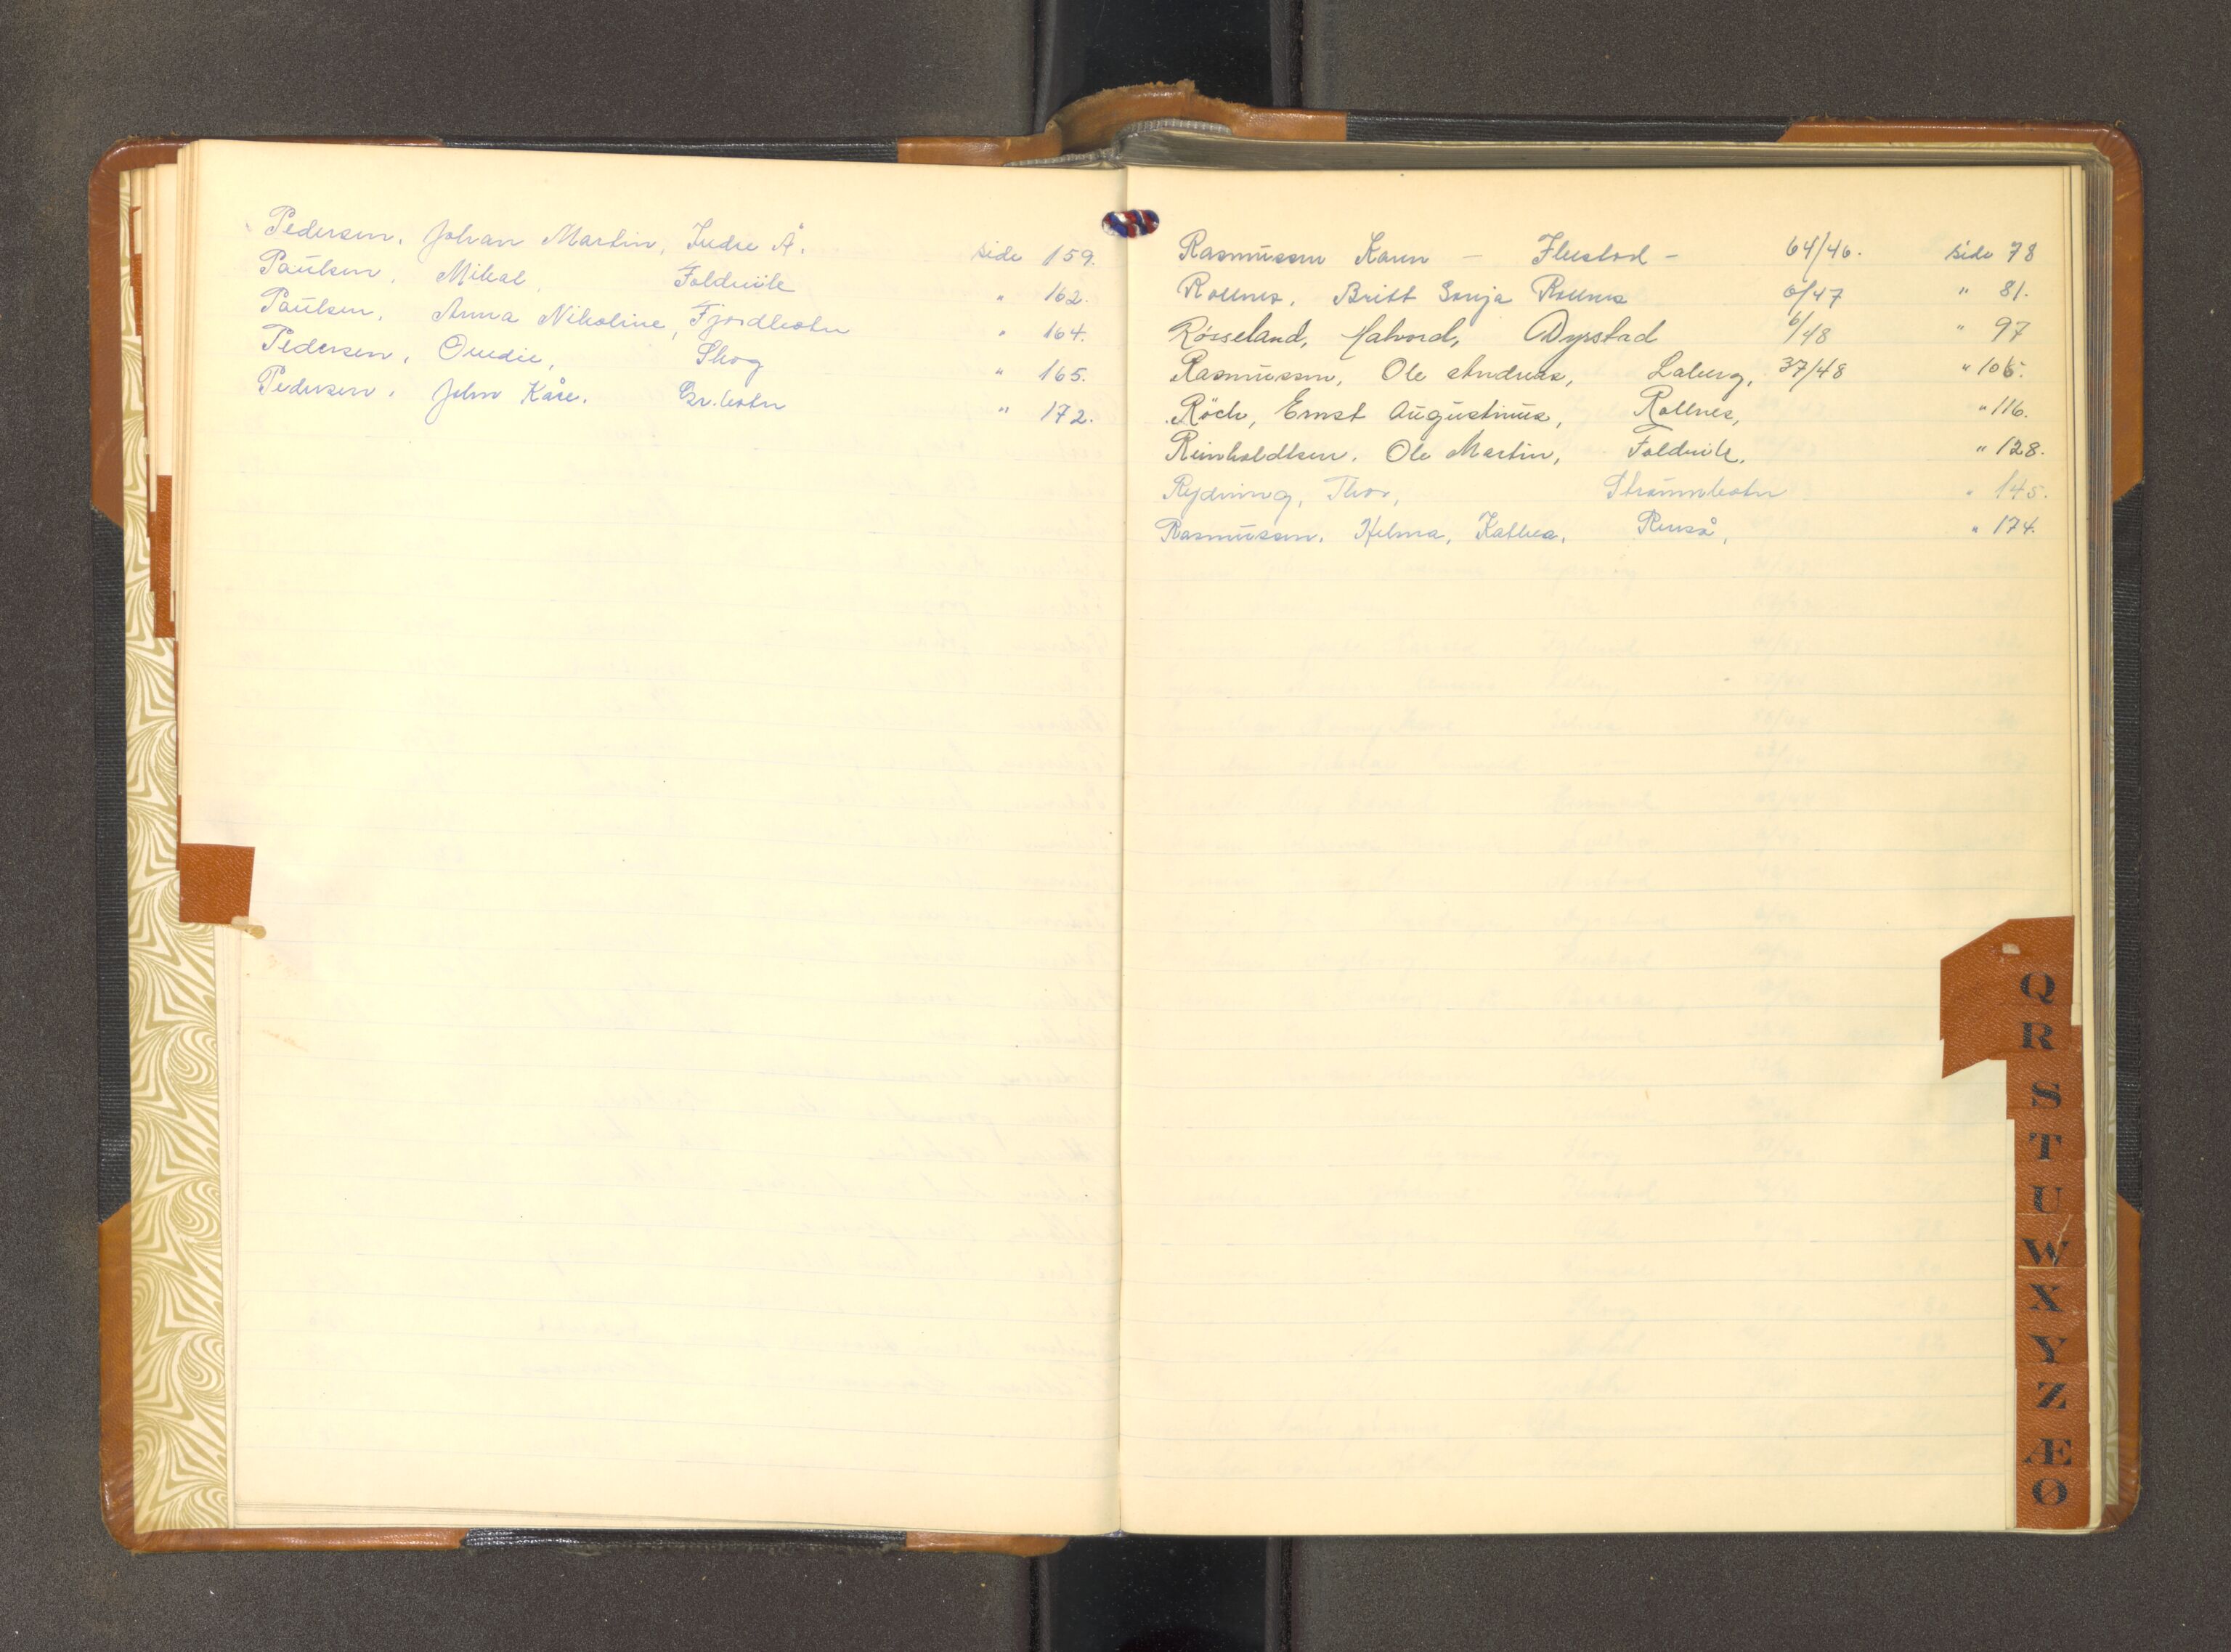 Pedersen, Johan Martin, Indre Å. side 159.
Paulsen, Mikal, Foldvik " 162.
Paulsen, Anna Nikoline, Fjordbotn " 164.
Pedersen, Ovedie, Skog " 165.
Pedersen, John Kåre. Gr.botn " 172.
Rasmussen Karen - Ilustad - 64/46. side 78
Rollnes, Britt Sonja Rollnes 6/47 " 81.
Rösseland, Halvard, Dyrstad 6/48 " 97
Rasmussen, Ole Andreas, Laberg, 37/48 " 106.
Röch, Ernst Augustinus, Rollnes, " 116.
Reinholdtsen, Ole Martin, Foldvik. " 128.
Rydning, Thor, Straumbotn " 145.
Rasmussen, Helma, Kathea, Renså, " 174.
Q
R
S
T
U
W
X
Y
Z
Æ
Ø